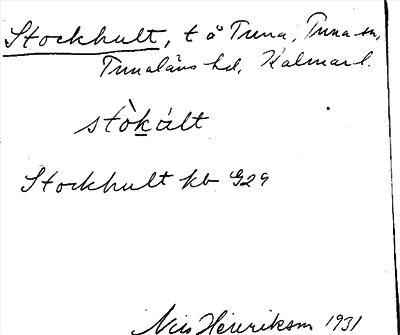 Stockhult, t å Tuna, Tuna sn,
Tunaläns hd, Kalmar l.
stòkált
Stockhult kb G29
Nils Henriksson 1931